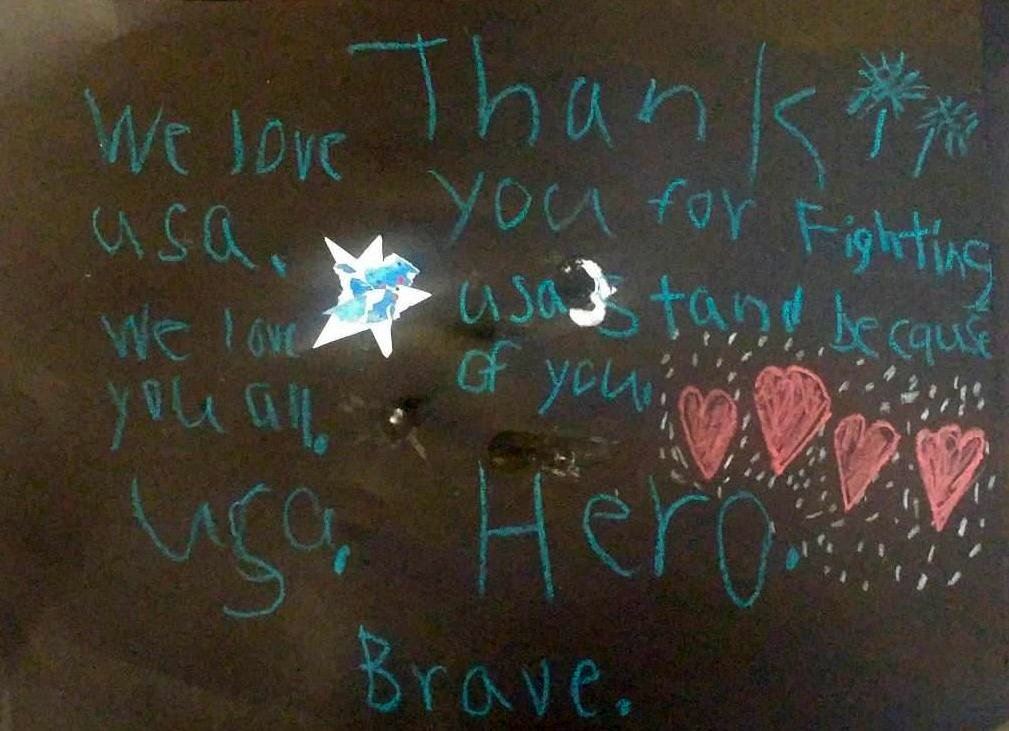 Thank
you for Fighting
usa stand because
of you.
We love
usa.
We love
you all.
usa.
Hero.
Brave.